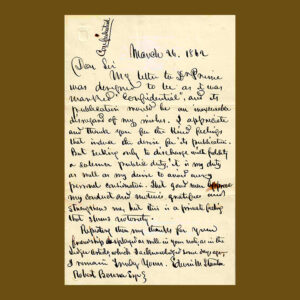 Confidential
March 26. 1862
Dear Sir
My letter to Dr Prime
was designed to be as it was
marked "Confidential", and its
publication would be an inexcusable
disregard of my wishes. I appreciate
and thank you for the kind feelings
that induce the desire for its publication.
But seeking only to discharge with fidelity
a solemn public duty, it is my duty
as well as my desire to avoid any
personal
my conduct and motives gratifies and
strengthens me, but this is a private feeling
that shuns notoriety.
Repeating then my thanks for your
friendship displayed as well in your note, as in the
which I acknowledged some days ago
I remain Truly Yours. Edwin M Stanton
Robert Bonner Esqr